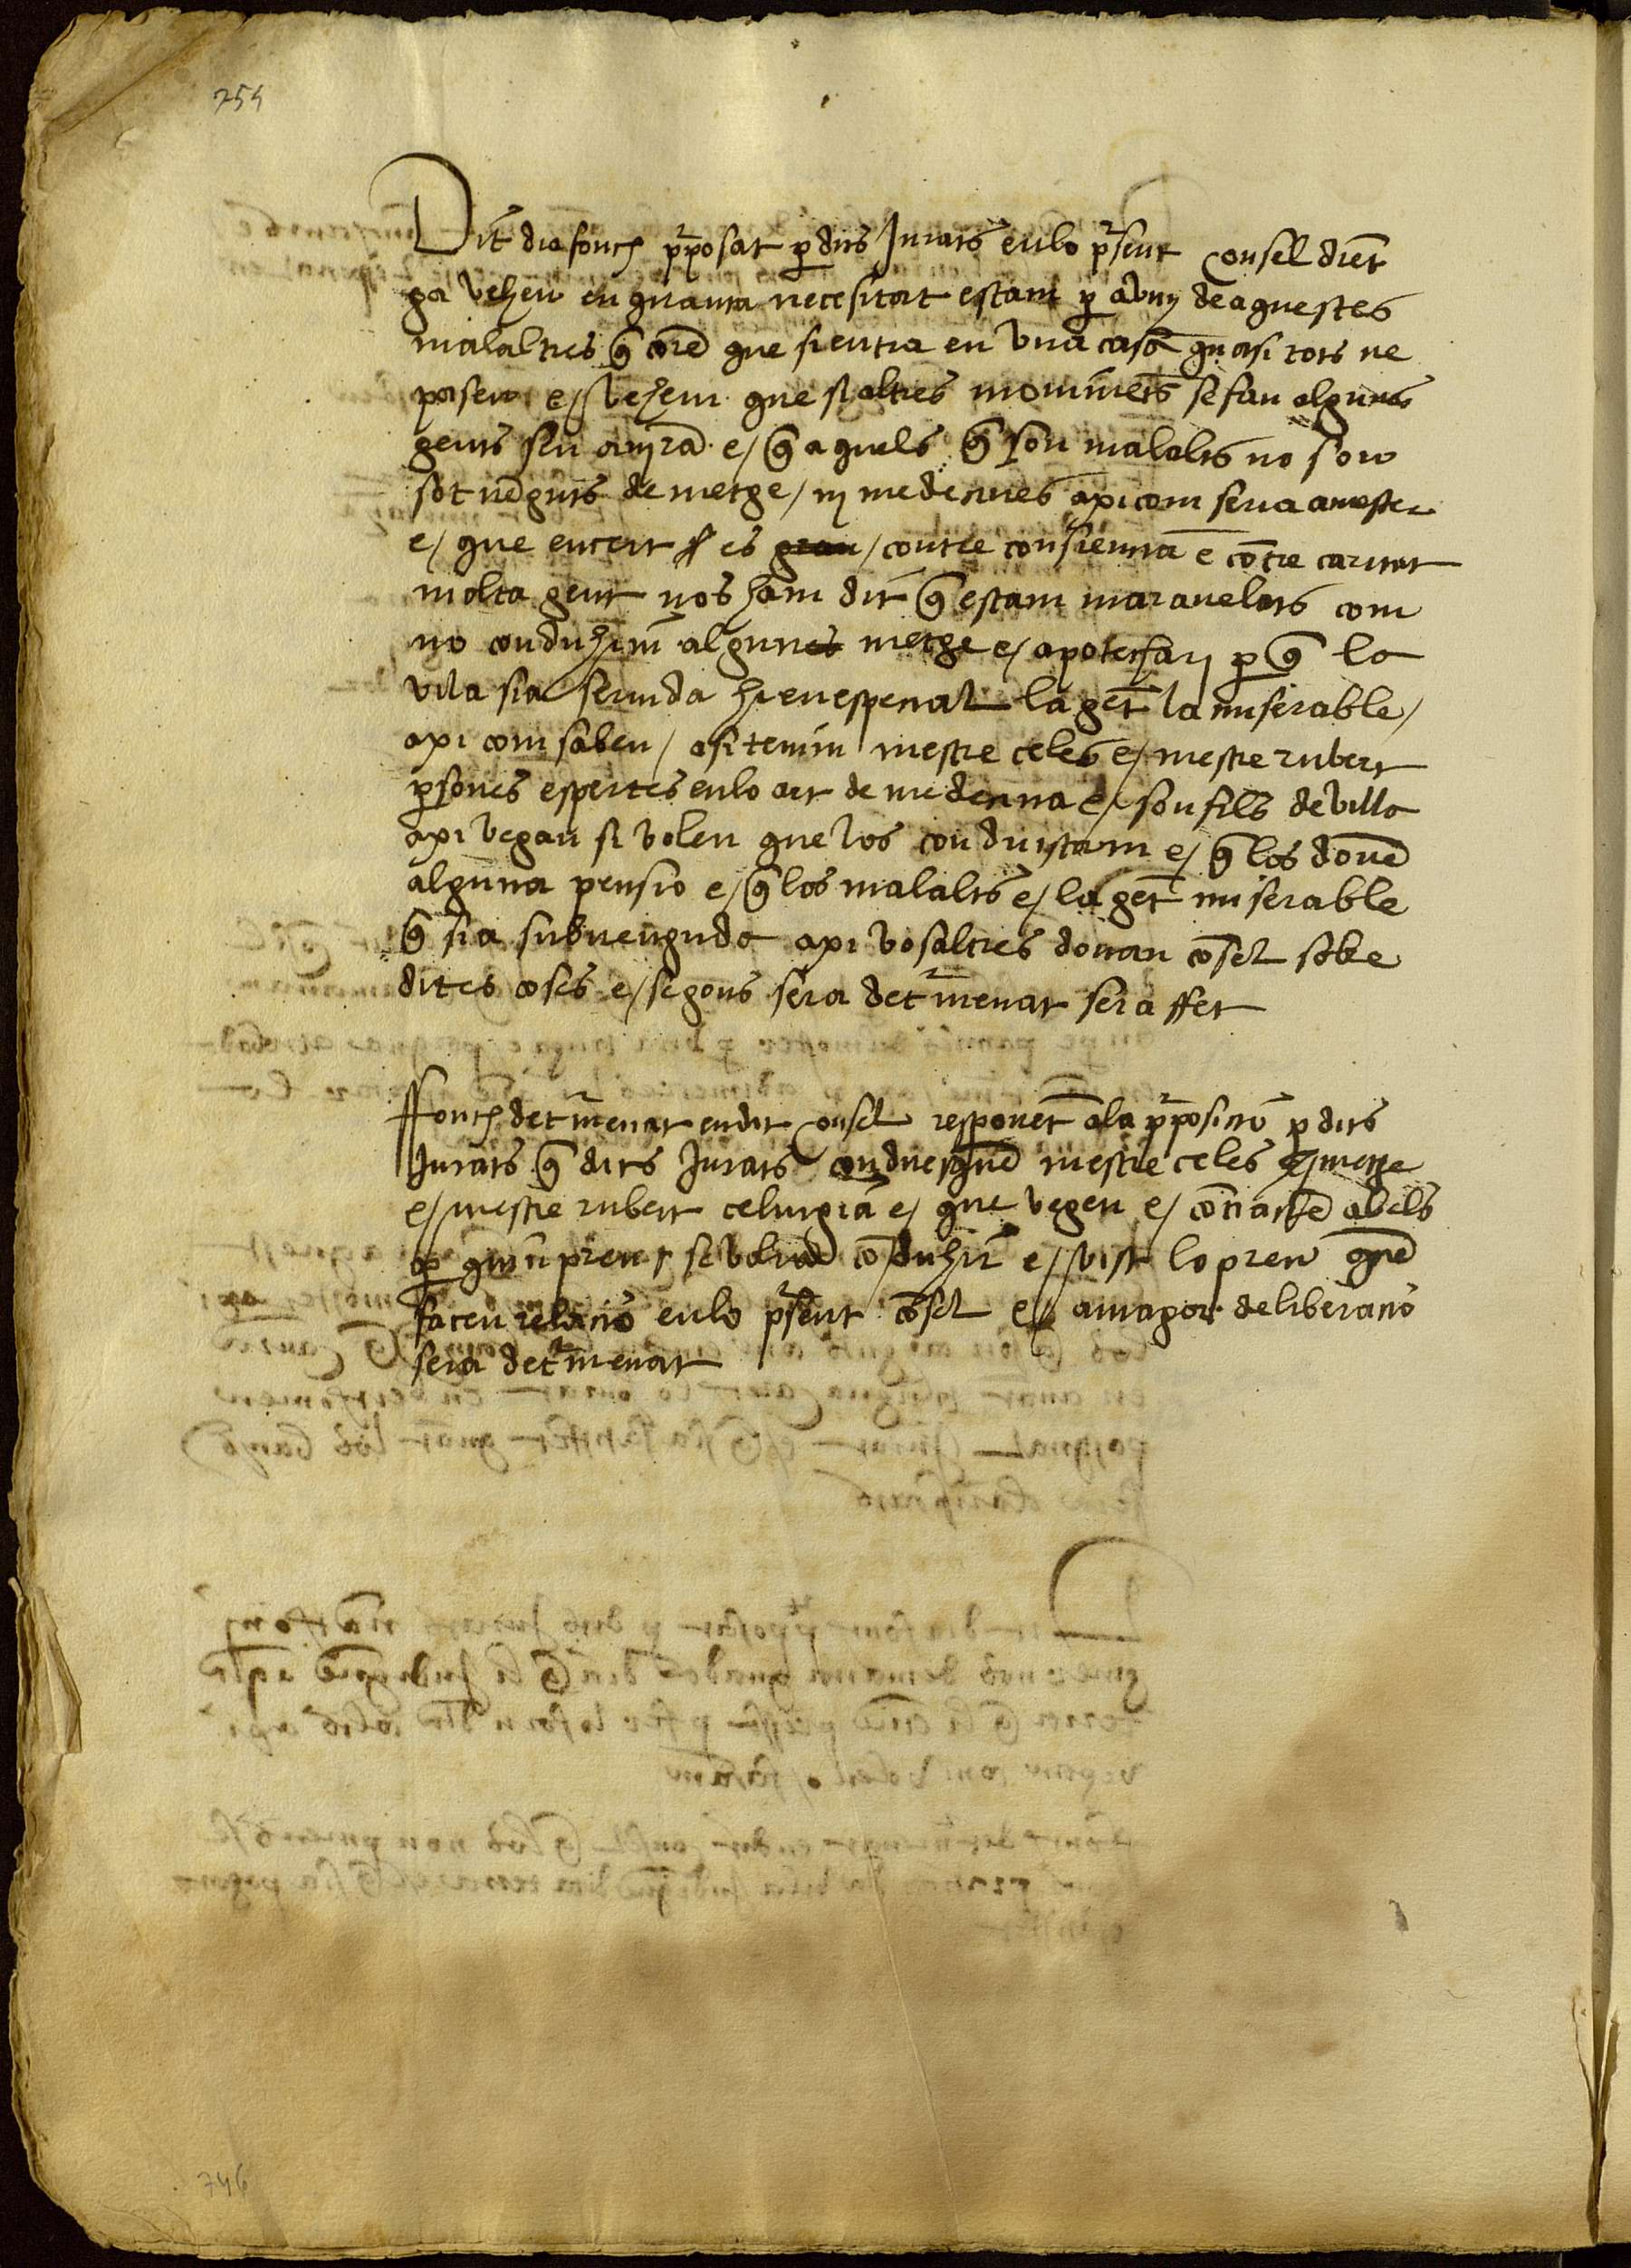 754
Dit dia fonch pposat p dits Jurats en lo psent Consel dient
ga vehen en quanta necesitat estam p avuy de aquestes
malalties q corē que si entra en vna casa quasi tots ne
pasen e/ vehem que si altres moviments se fan algunes
gents sen anirā e/ q aquels q son malalts no son
sot venguts de metge / ny medecines axi com seria a mester
e/ que en cert es / contre consiencia e cōtre caritat
molta gent nos ham dit q estam maravelats com
no conduhim algun metge e/ apotecari p q la
vila sia servida hi en especial la gēt la miserable /
axi com saben / asi tenim mestre celes e/ mestre rubert
psones espertes en lo art de medecina e/ son fils de villa
axi vegan si volen que los conduiscam e/ q los donē
alguna pensio e/ q los malalts e/ la gēt miserable
q sia subvenguda axi vosaltres donau cōsel sobre
dites coses e/ segons sera detmenat sera ffet
Ffonch detmenat en dit consel responēt a la pposicio p dits
Jurats q dits Jurats conduesquē mestre celes metge
e/ mestre rubert celurgiā e/ que vegen e/ cōtractē ab els
p quin preu se volrā cōduhir e/ vist lo preu quē
facen relacio en lo psent cōsel e/ a maior deliberacio
sera detmenat
746